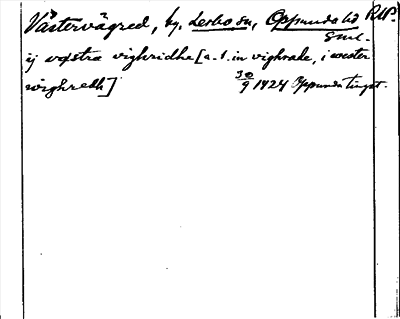 Västervägred, by, Lerbo sn, Oppunda hd RAP.
Sml.
ij væstra vighridhe [a. 1. in vighrade, i wester
wighredh] 30/9 1424 Oppunda tingst.